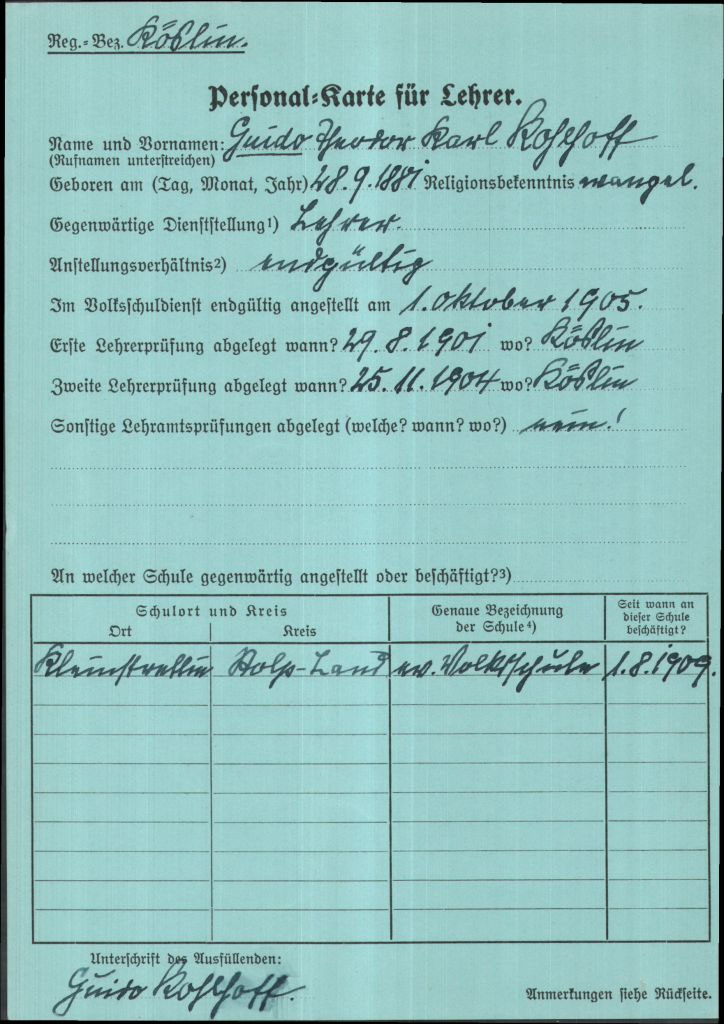 Reg.-Bez. Köslin.
Personal-Karte für Lehrer.
Name und Vornamen: Guido Theodor Karl Kohlhoff
(Rufnamen unterstreichen)
Geboren am (Tag, Monat, Jahr) 28.9.1881 Religionsbekenntnis evangel.
Gegenwärtige Dienststellung1) Lehrer.
Anstellungsverhältnis2) endgültig
Im Volksschuldienst endgültig angestellt am 1. Oktober 1905.
Erste Lehrerprüfung abgelegt wann? 29.8.1901 wo? Köslin
Zweite Lehrerprüfung abgelegt wann? 25.11.1904 wo? Köslin
Sonstige Lehramtsprüfungen abgelegt (welche? wann? wo?) nein!
An welcher Schule gegenwärtig angestellt oder beschäftigt?3)
Schulort und Kreis
Ort Kreis
Genaue Bezeichnung
der Schule4)
Seit wann an
dieser Schule
beschäftigt?
Kleinstrellin Stolp-Land ev. Volksschule 1.8.1909.
Unterschrift des Ausfüllenden:
Guido Kohlhoff.
Anmerkungen siehe Rückseite.